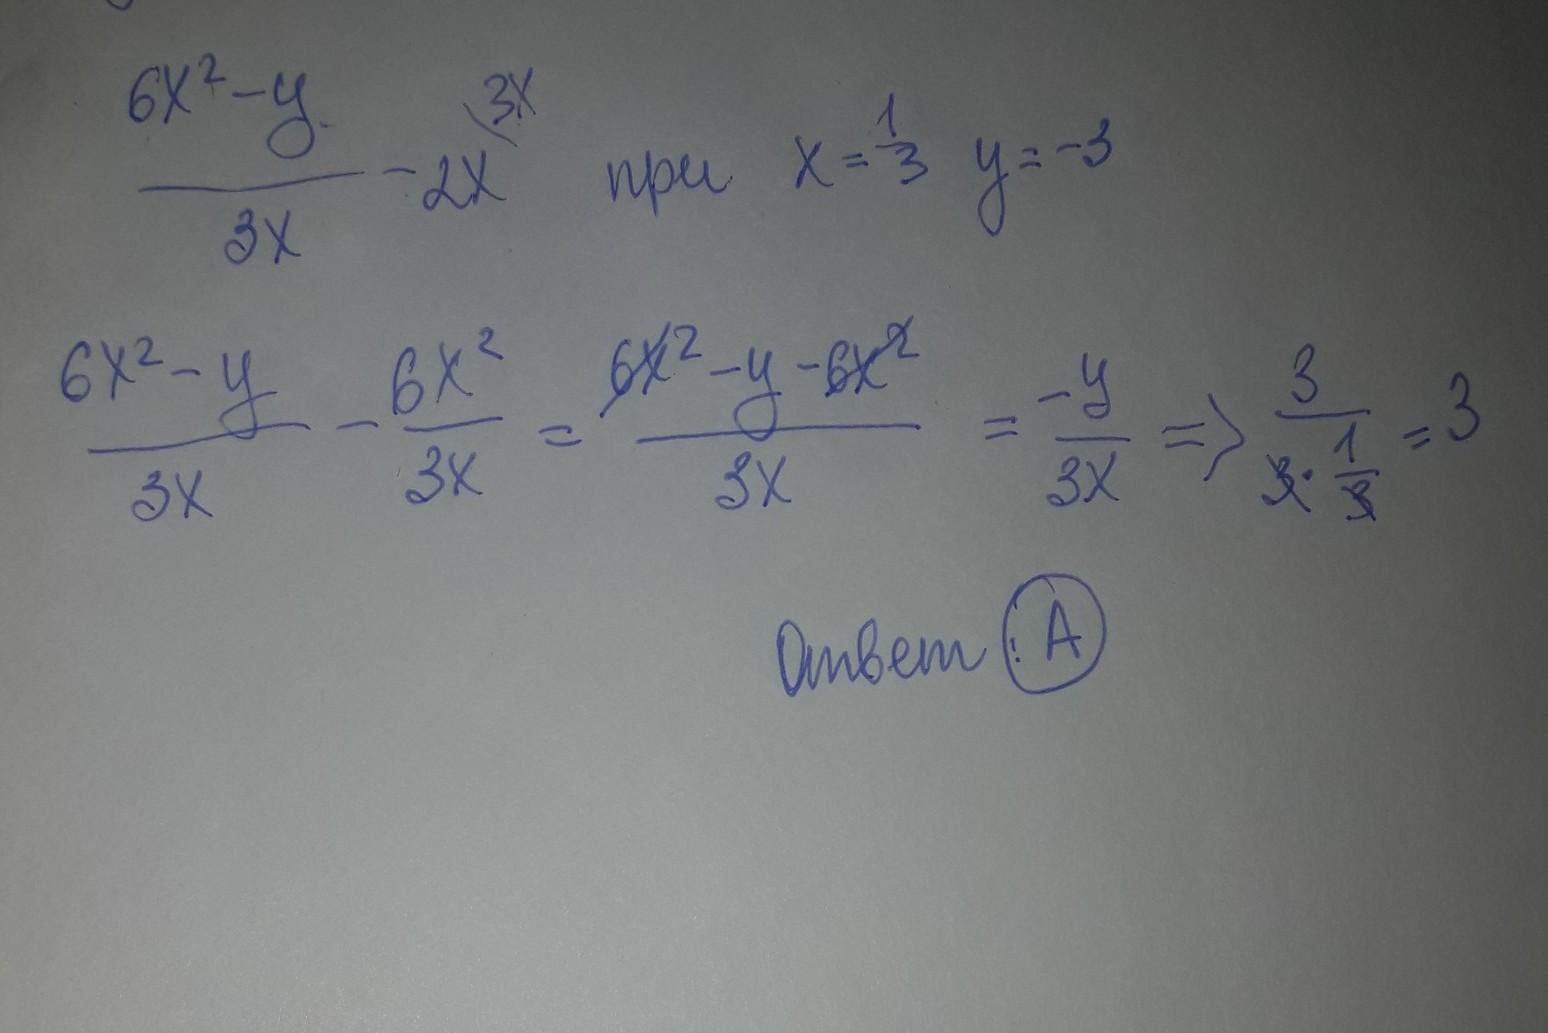 (6x² - y)/(3x) - 2x\3x при x = 1/3 y = -3
(6x² - y)/(3x) - 6x²/(3x) = (6x² - y - 6x²)/(3x) = -y/(3x) => 3/(3·1/3) = 3
Ответ: А